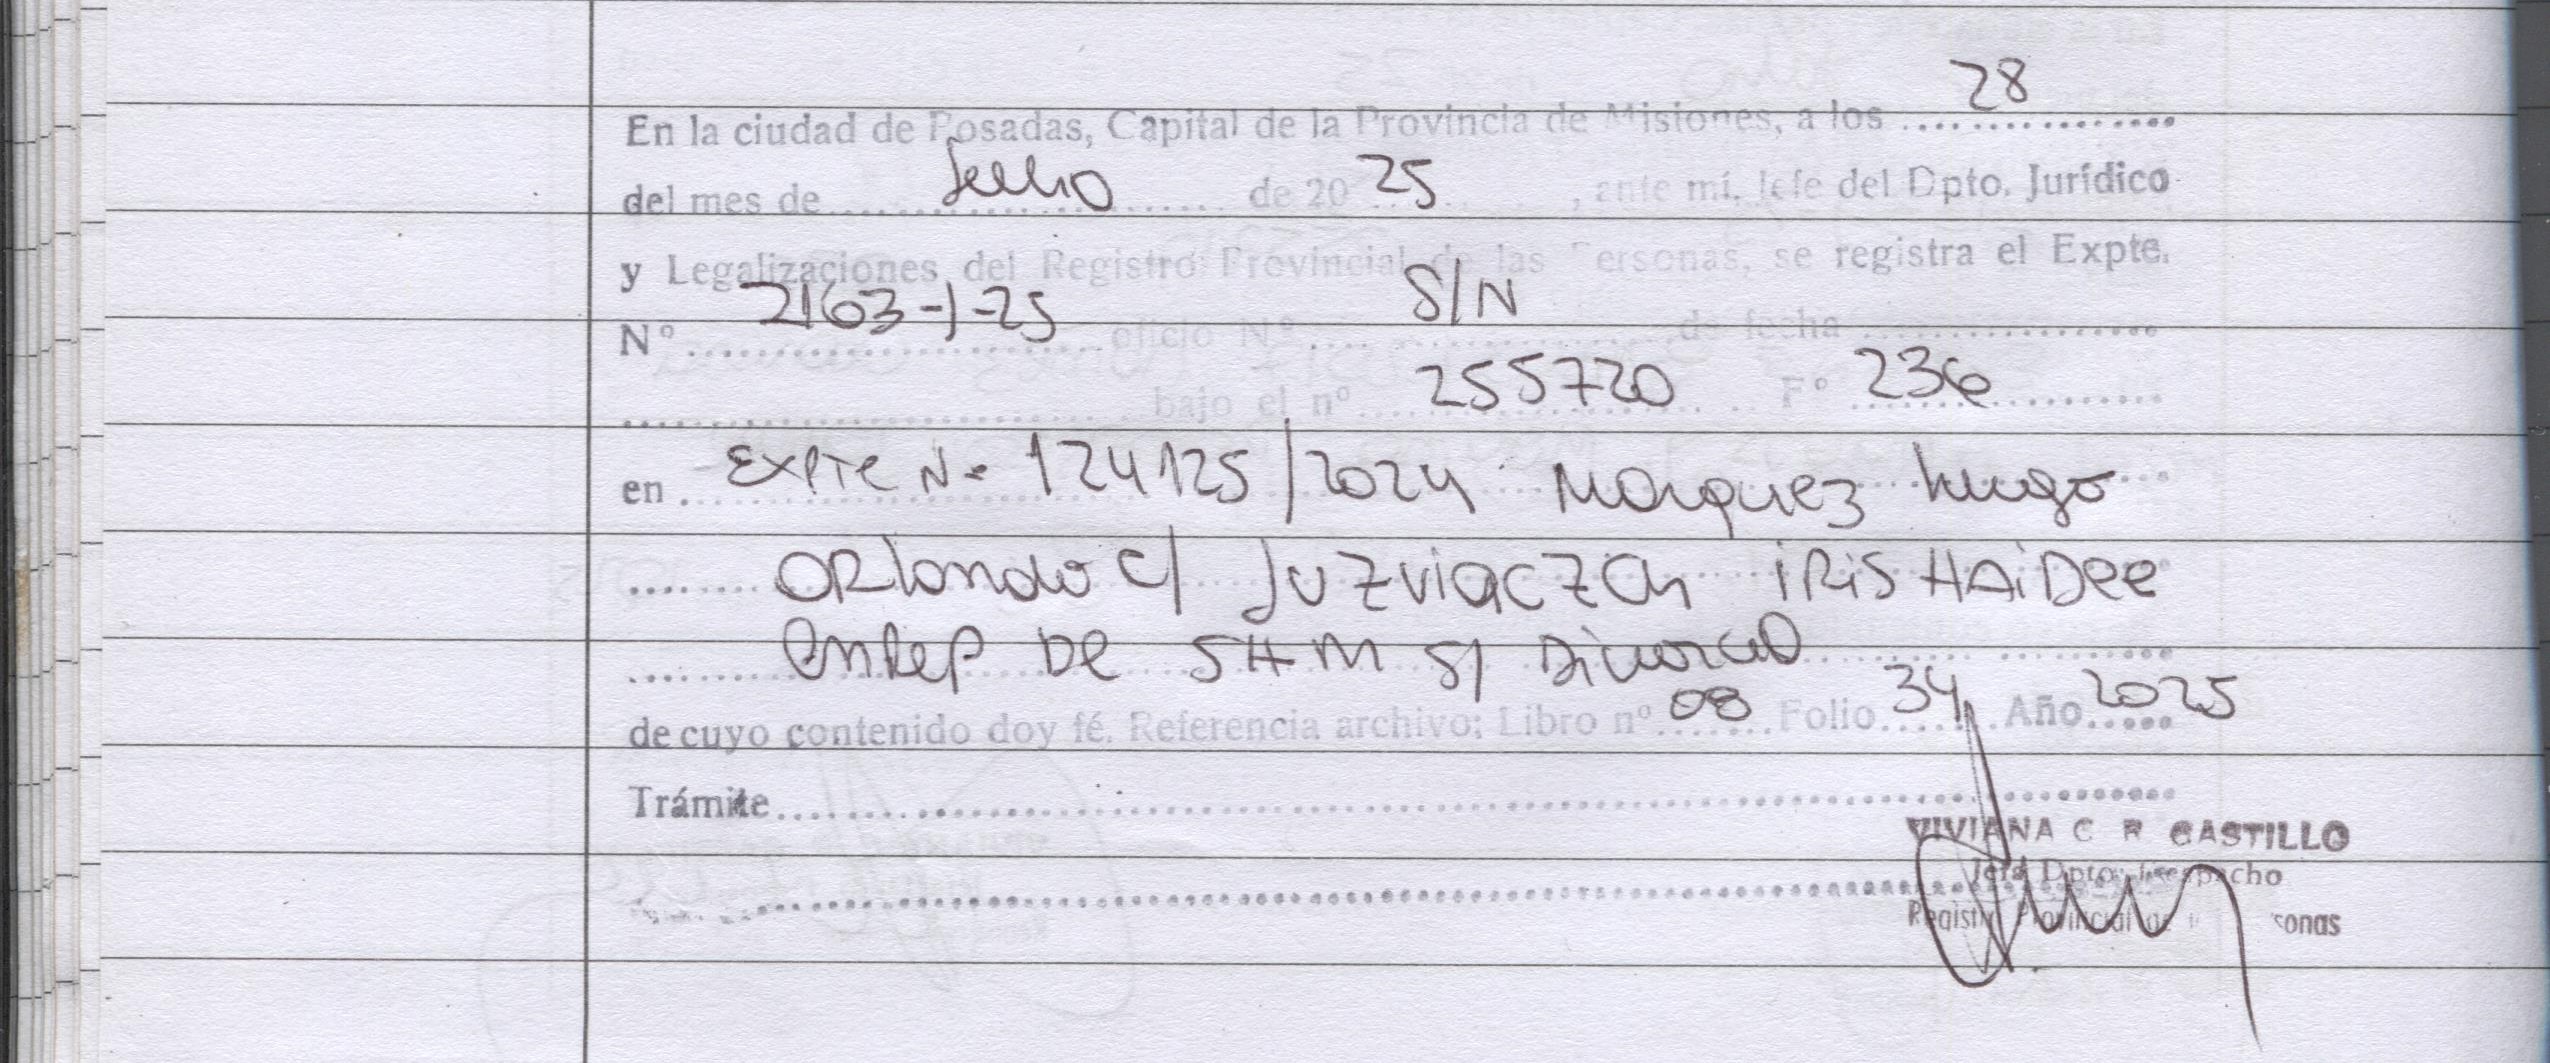 En la ciudad de Posadas, Capital de la Provincia de Misiones, a los 28
del mes de Julio de 20 25, ante mí, Jefe del Dpto. Jurídico
y Legalizaciones del Registro Provincial de las Personas, se registra el Expte.
Nº 2163-J-25 oficio Nº S/N de fecha
bajo el nº 255720 Fº 236
en Expte Nº 124125/2024 Marquez Hugo
Orlando C/ Juzviaczch IRIS HAIDEE
DE SHM S/ Divorcio
de cuyo contenido doy fé. Referencia archivo: Libro nº 08 Folio 34 Año 2025
Trámite
VIVIANA C R CASTILLO
Jefa Dpto. Despacho
Registro Provincial de las Personas